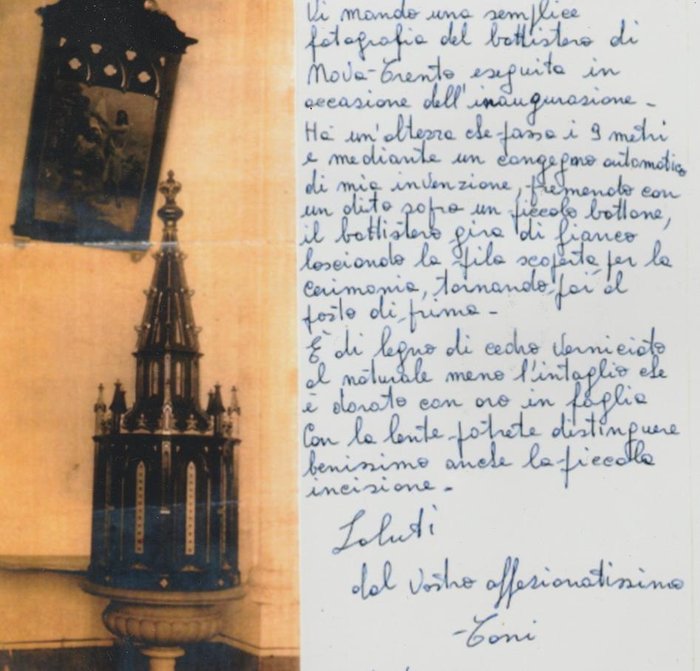 Vi mando una semplice
fotografia del battistero di
Nova-Trento eseguita in
occasione dell'inaugurazione -
Ha un'altezza che passa i 3 metri
e mediante un congegno automatico
di mia invenzione, premendo con
un dito sopra un piccolo bottone,
il battistero gira di fianco
lasciando la pila scoperta per la
cerimonia, tornando poi al
posto di prima -
È di legno di cedro verniciato
al naturale meno l'intaglio che
è dorato con oro in foglia
Con la lente potrete distinguere
benissimo anche la piccola
incisione -
Saluti
dal Vostro affezionatissimo
- Toni